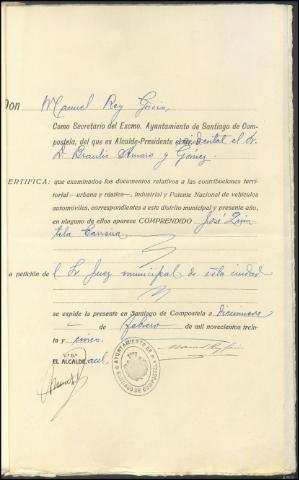 Don Manuel Rey Gavin,
Como Secretario del Excmo. Ayuntamiento de Santiago de Com-
postela, del que es Alcalde-Presidente accidental el Sr.
D. Braulio Amaro y Gómez.
CERTIFICA: que examinados los documentos relativos a las contribuciones terri-
torial—urbana y rústica—, industrial y Patente Nacional de vehículos
automóviles, correspondientes a este distrito municipal y presente año,
en ninguno de ellos aparece COMPRENDIDO José Pim-
tela
a petición del Sr. Juez municipal de esta ciudad
se expide la presente en Santiago de Compostela a diecinueve
de febrero de mil novecientos trein-
ta y cinco.
V.º B.º
EL ALCALDE accl.
AYUNTAMIENTO DE SANTIAGO